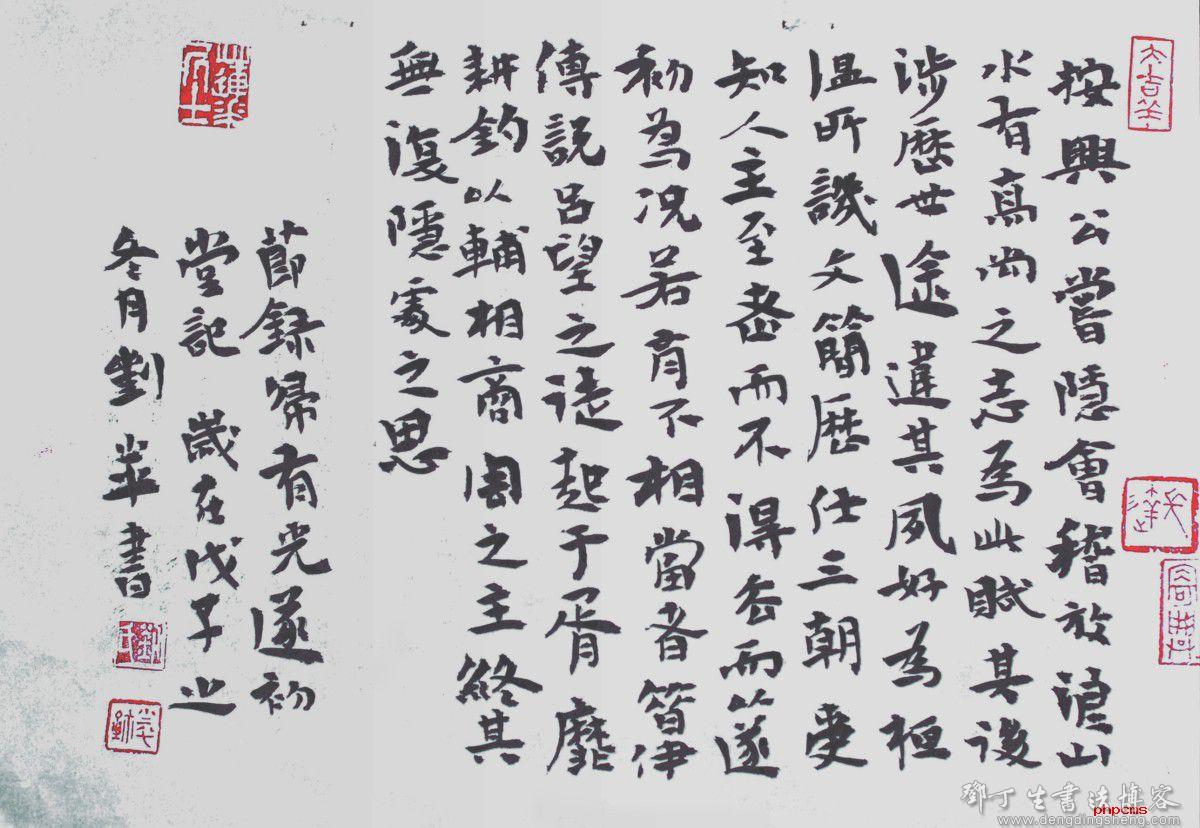 按興公嘗隱會稽放浪山
水有高尚之志為此賦其後
涉歷世途違其夙好為桓
溫所譏文簡歷仕三朝受
知人主至老而不得去而以遂
初為況若有不相當者昔伊
傅說呂望之徒起于胥靡
耕釣以輔相商周之主終其
無復隱處之思
節錄歸有光遂初
堂記 歲在戊子之
冬月劉書
大吉羊
鄧丁生書法博客
www.dengdingsheng.com
phpcms